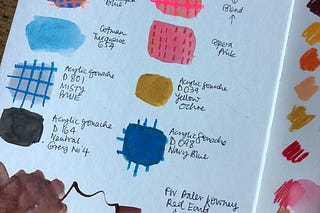 Blue
↑
Blend
Cotman
Turquoise
654
Opera
Pink
Acrylic gouache
D 801
MISTY
BLUE
Acrylic gouache
D 039
Yellow
Ochre
Acrylic gouache
D 164
Neutral
Grey No 4
Acrylic Gouache
D 098
Navy Blue
FW Daler Rowney
Red Earth